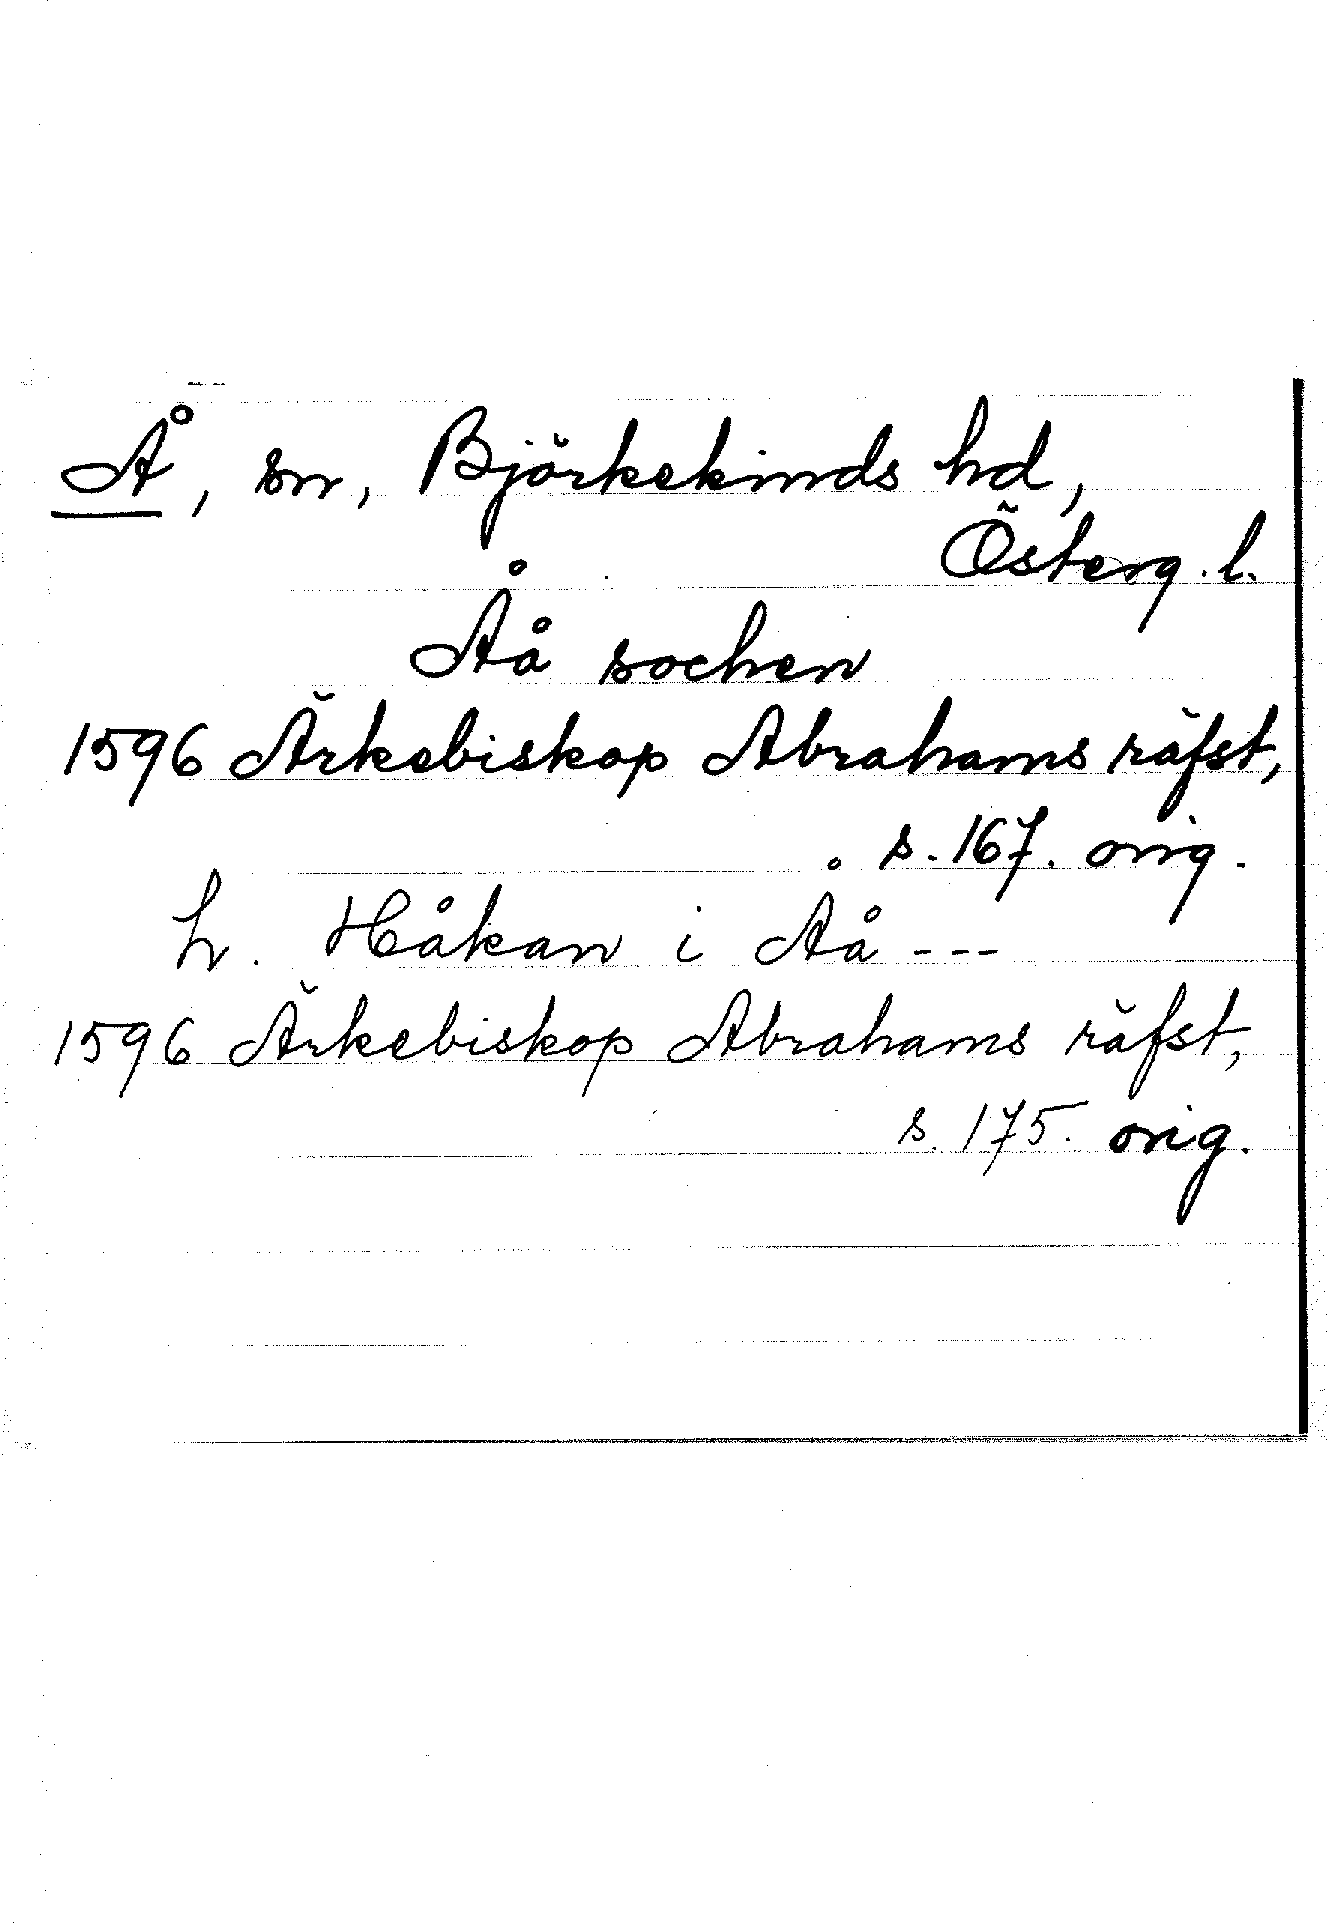 Å, sn, Björkekinds hd,
Österg.l.
Åå sochen
1596 Ärkebiskop Abrahams räfst,
s. 167. orig.
h. Håkan i Åå ---
1596 Ärkebiskop Abrahams räfst,
s. 175. orig.